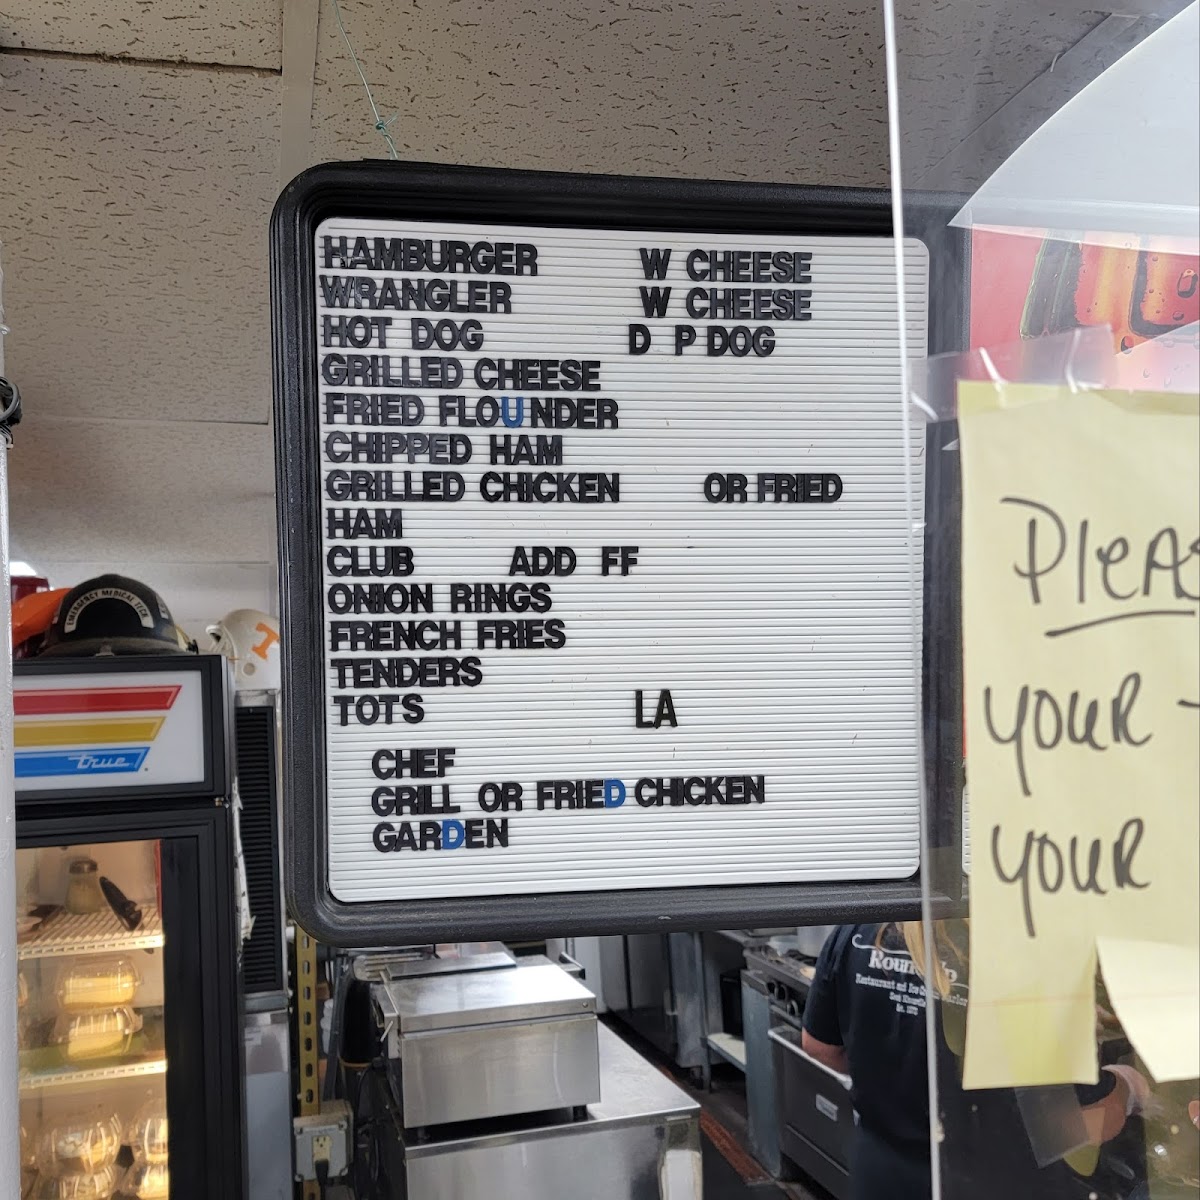 HAMBURGER W CHEESE
WRANGLER W CHEESE
HOT DOG D P DOG
GRILLED CHEESE
FRIED FLOUNDER
CHIPPED HAM
GRILLED CHICKEN OR FRIED
HAM
CLUB ADD FF
ONION RINGS
FRENCH FRIES
TENDERS
TOTS LA
CHEF
GRILL OR FRIED CHICKEN
GARDEN
PleAs
YOUR
YOUR
EMERGENCY MEDICAL TECH
T
true
Restaurant and Ice Cream Parlor